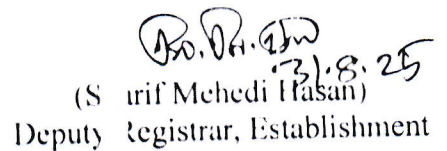 31.8.25
(S arif Mehedi Hasan)
Deputy Registrar, Establishment